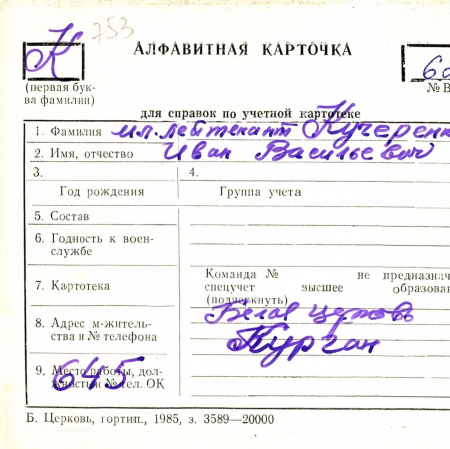 К 753
АЛФАВИТНАЯ КАРТОЧКА
(первая бук-
ва фамилии)
№ В
для справок по учетной картотеке
1. Фамилия мл. лейтенант Кучерен
2. Имя, отчество Иван Васильевич
3.
Год рождения
4.
Группа учета
5. Состав
6. Годность к воен-
службе
7. Картотека
Команда № не предназнач
спецучет высшее образова
(подчеркнуть)
8. Адрес м-житель-
ства и № телефона
Белая церковь
Курган
9. Место работы, дол-
жность и № тел. ОК
645
Б. Церковь, гортип., 1985, з. 3589—20000